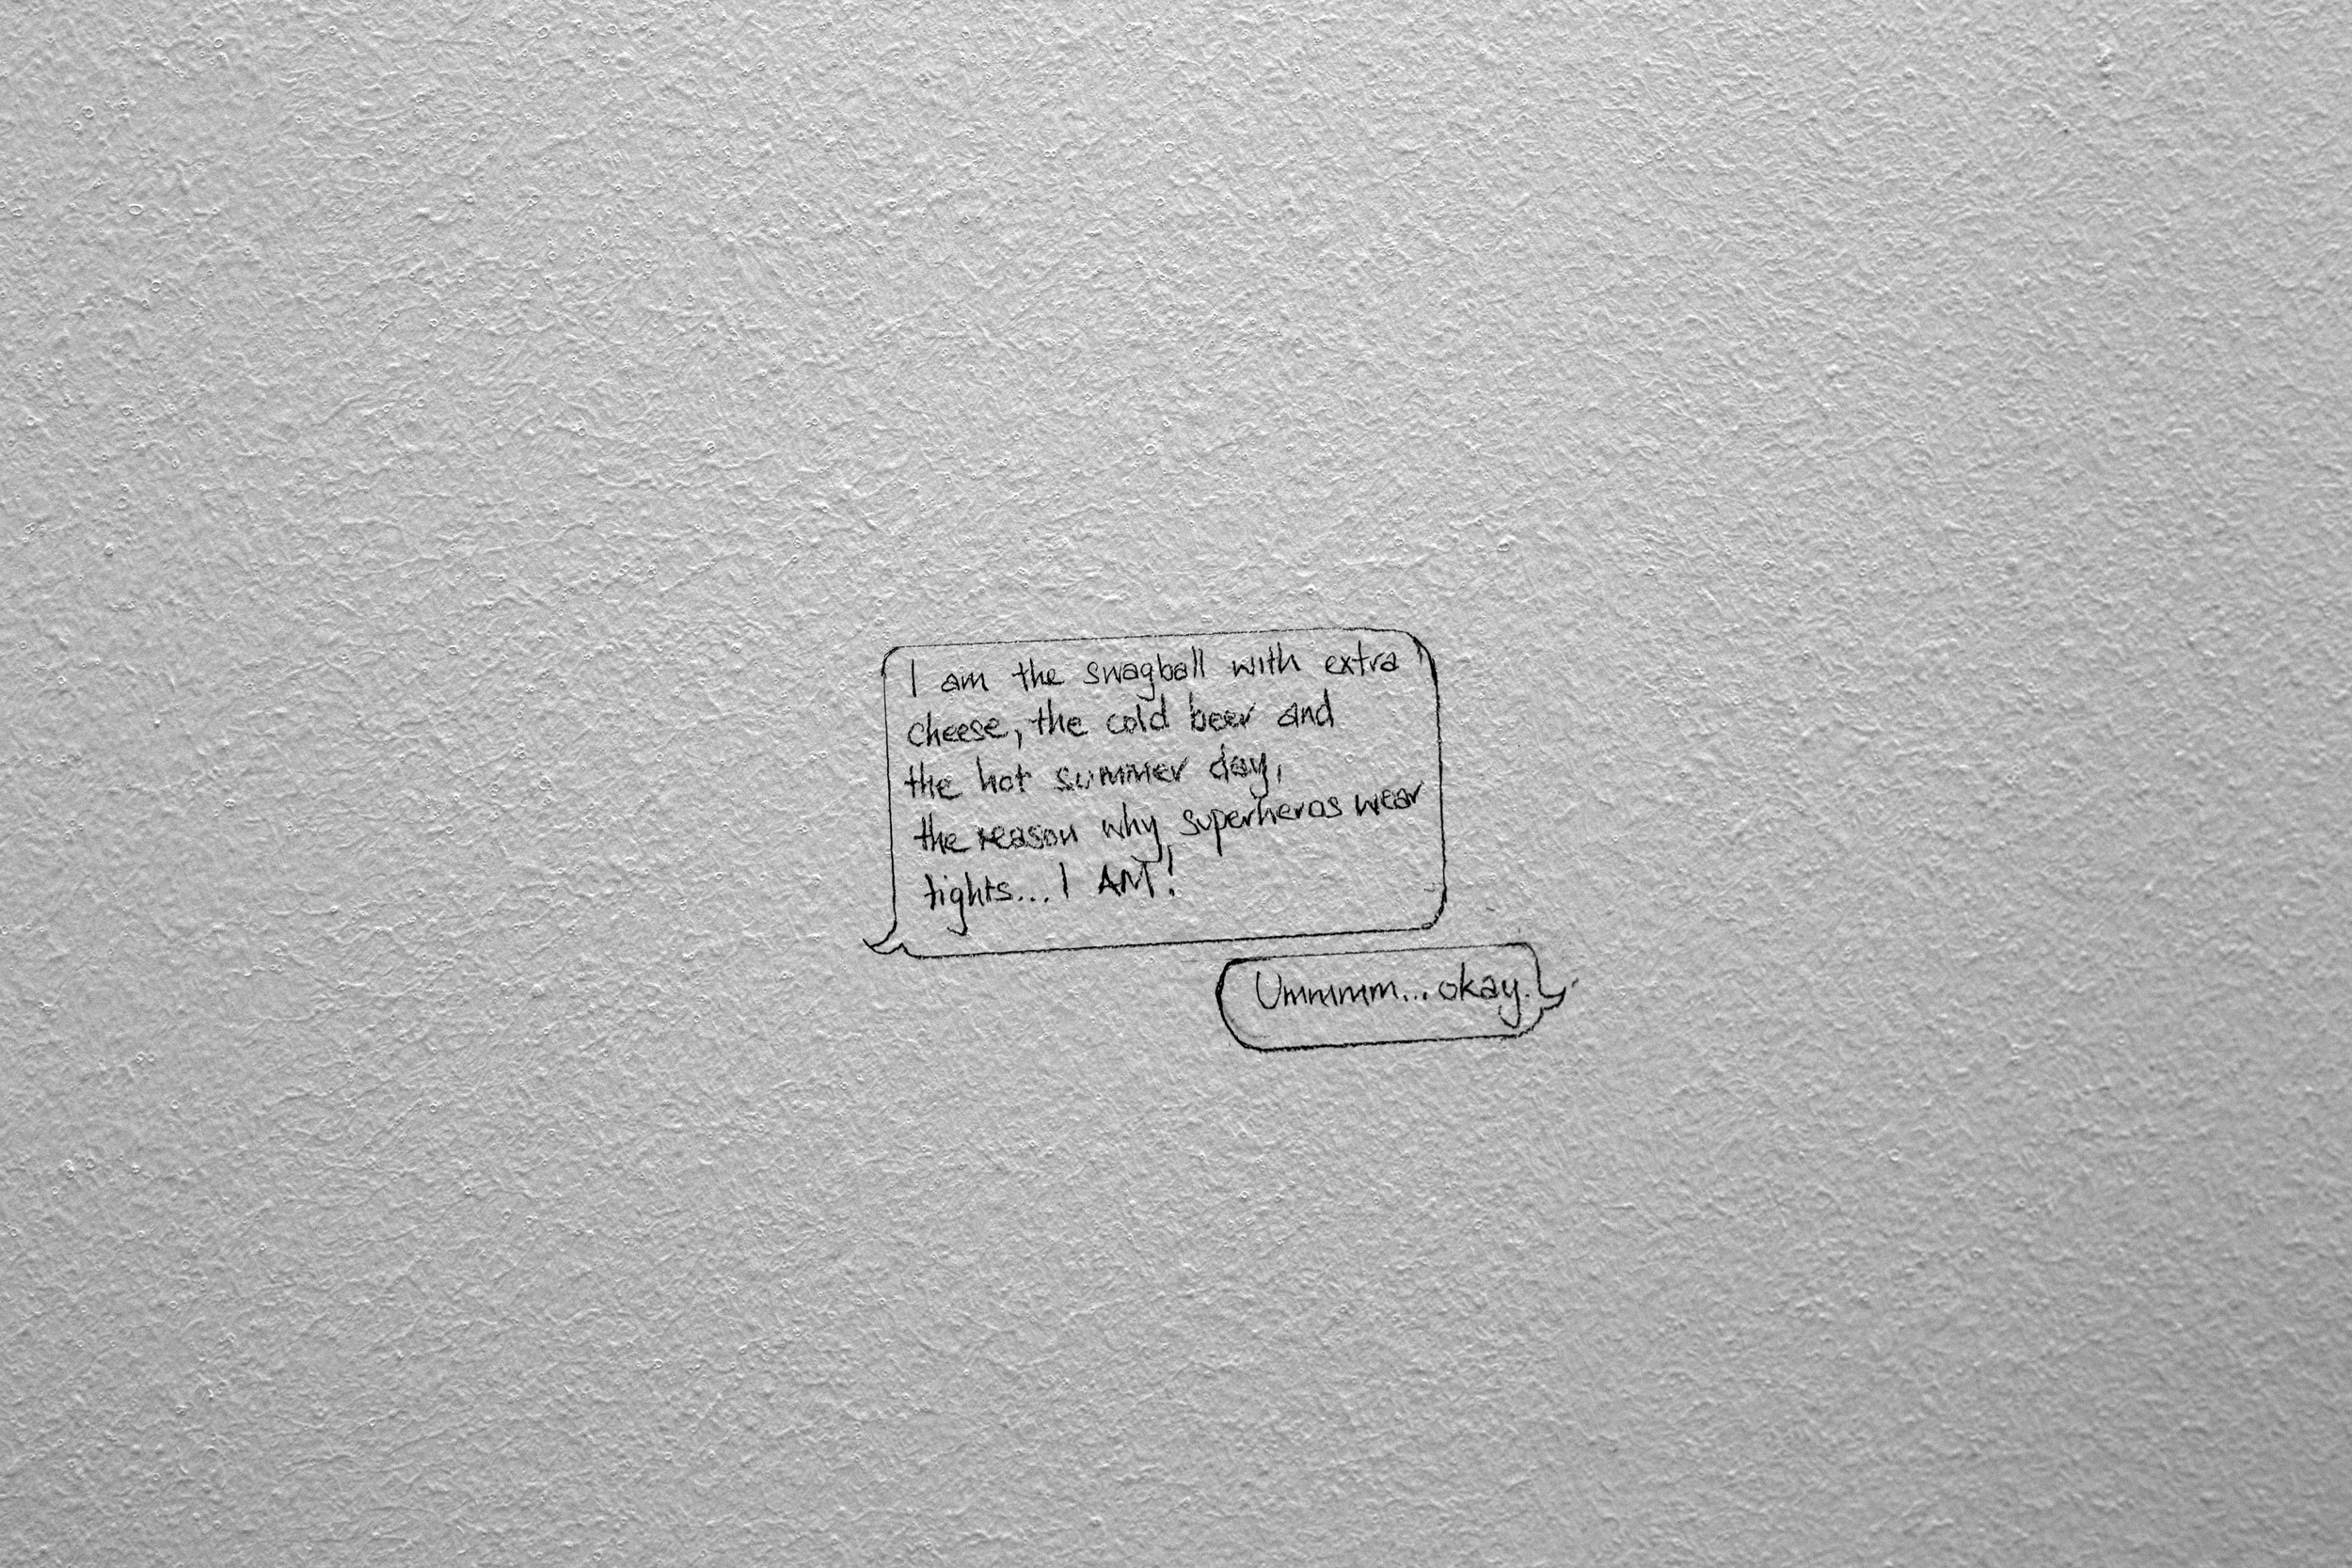 I am the swagball with extra
cheese, the cold beer and
the hot summer day,
the reason why superheros wear
tights... I AM!
Ummmm... okay.